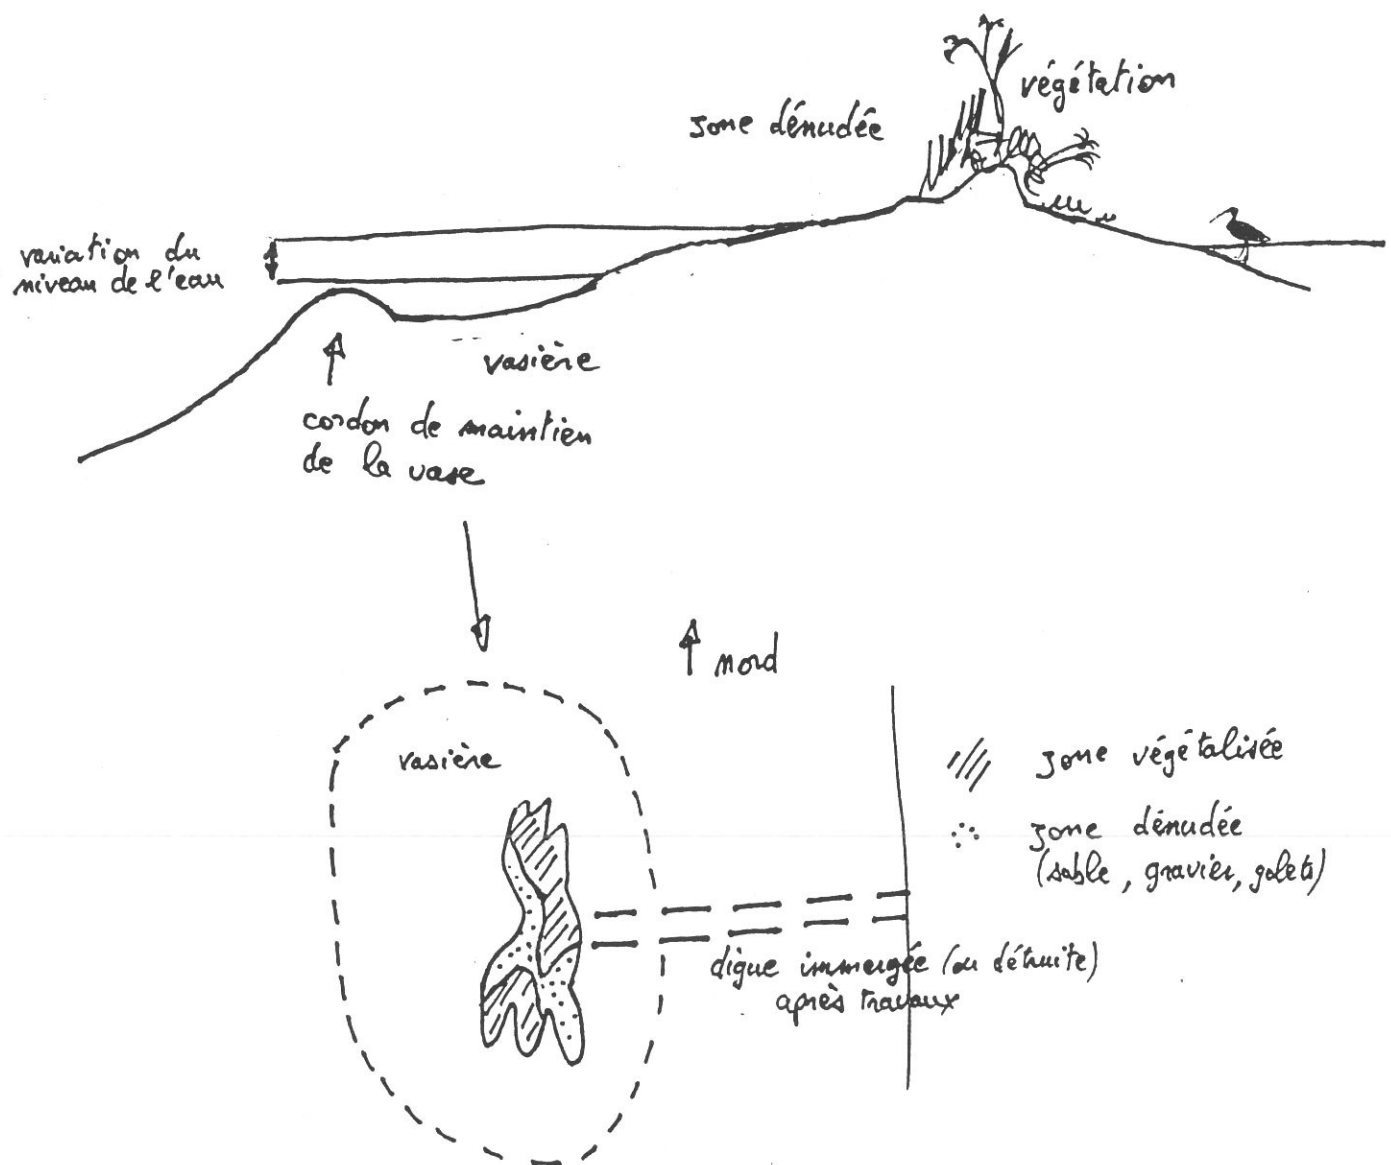 végétation
zone dénudée
variation du
niveau de l'eau
vasière
cordon de maintien
de la vase
nord
vasière
zone végétalisée
zone dénudée
(sable, gravier, galets)
digue immergée (ou détruite)
après travaux